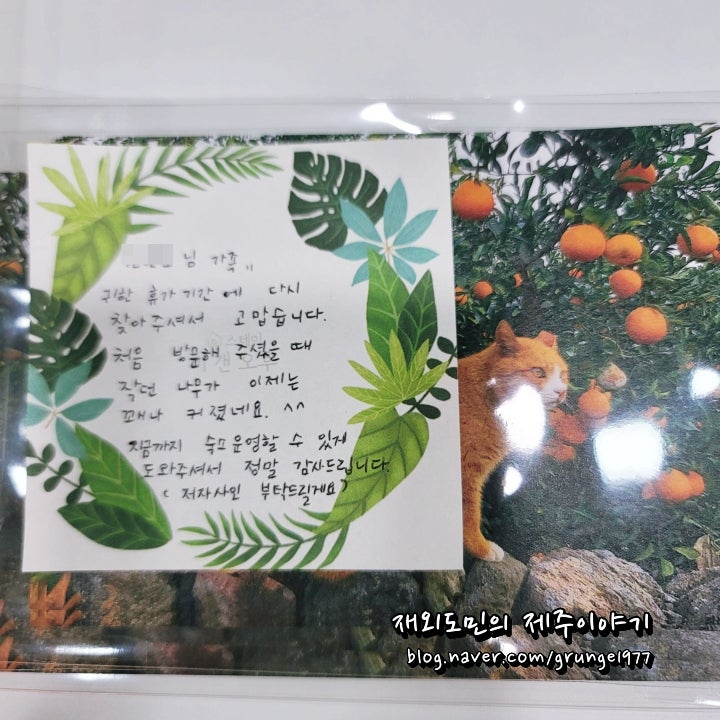 님 가족,,
귀한 휴가기간에 다시
찾아주셔서 고맙습니다.
처음 방문해 주셨을 때
작던 나무가 이제는
꽤나 커졌네요. ^^
지금까지 숙소 운영할 수 있게
도와주셔서 정말 감사드립니다.
( 저자사인 부탁드릴게요 )
재외도민의 제주이야기
blog.naver.com/grunge1977